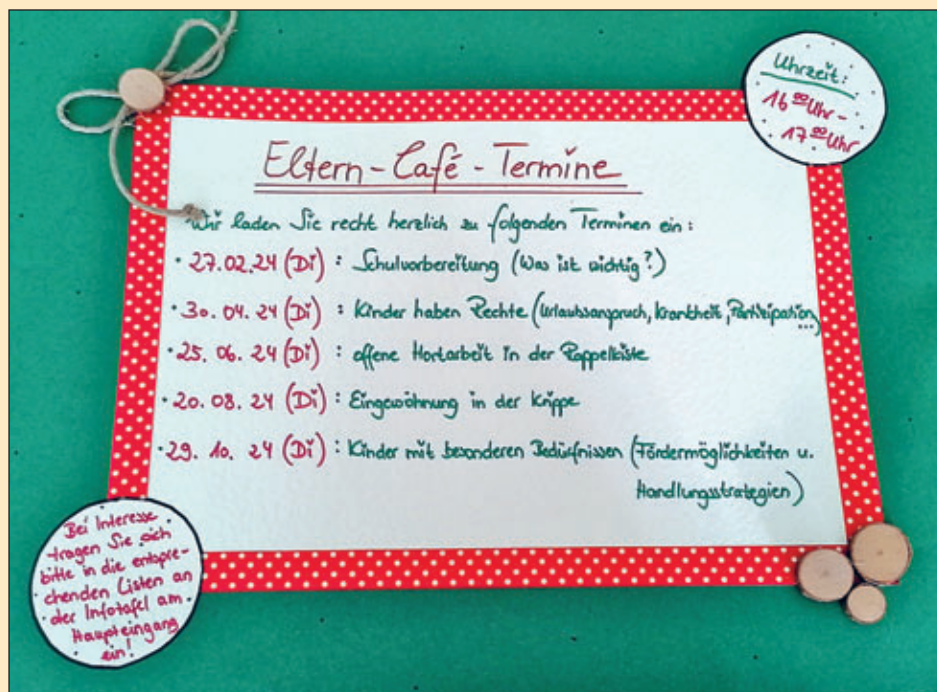 Uhrzeit:
16 00 Uhr -
17 00 Uhr
Eltern-Café-Termine
Wir laden Sie recht herzlich zu folgenden Terminen ein:
• 27.02.24 (Di): Schulvorbereitung (Was ist wichtig?)
• 30.04.24 (Di): Kinder haben Rechte (Urlaubsanspruch, Krankheit, Partizipation ...)
• 25.06.24 (Di): offene Hortarbeit in der Rappelkiste
• 20.08.24 (Di): Eingewöhnung in der Krippe
• 29.10.24 (Di): Kinder mit besonderen Bedürfnissen (Fördermöglichkeiten u.
Handlungsstrategien)
Bei Interesse
tragen Sie sich
bitte in die entspre-
chenden Listen an
der Infotafel am
Haupteingang
ein!